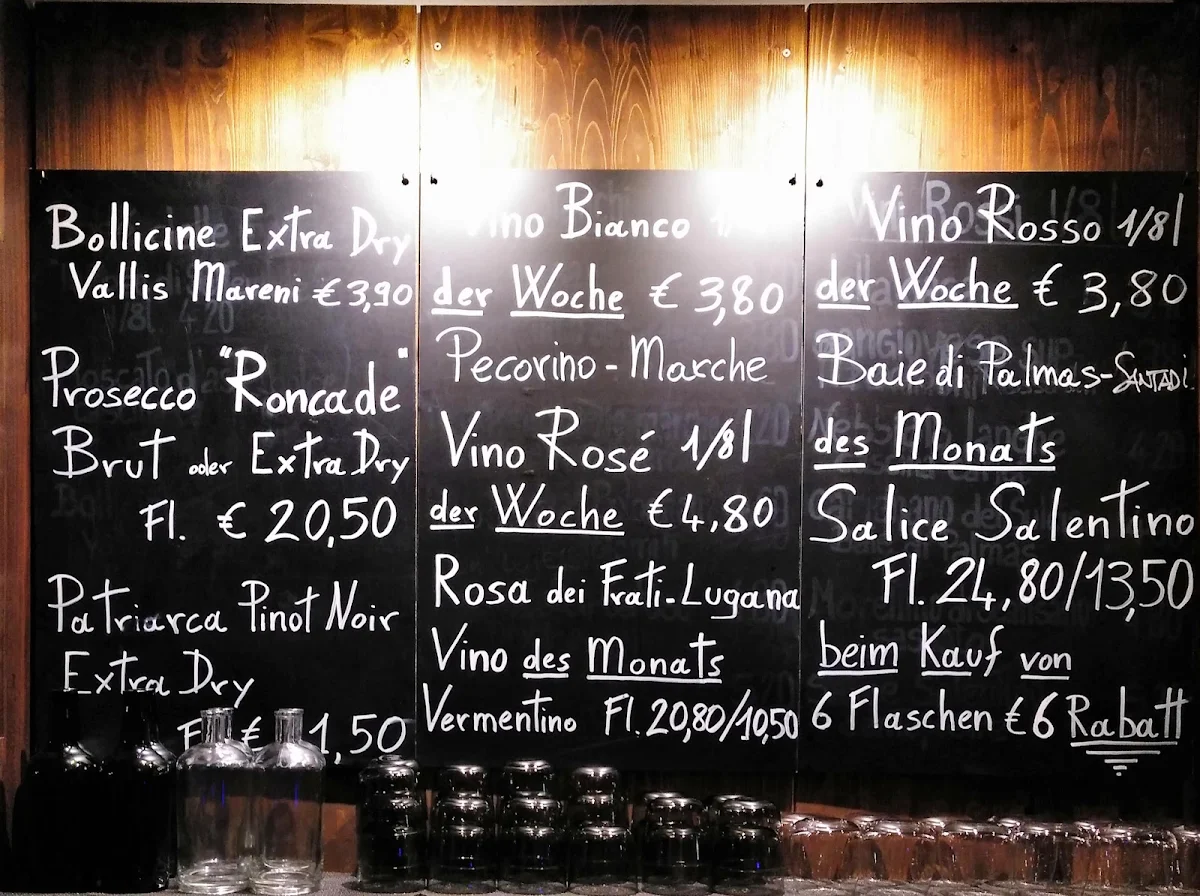 Bollicine Extra Dry
Vallis Mareni € 3,90
Prosecco "Roncade"
Brut oder Extra Dry
Fl. € 20,50
Patriarca Pinot Noir
Extra Dry
€ 1,50
Vino Bianco
der Woche € 3,80
Pecorino - Marche
Vino Rosé 1/8l
der Woche € 4,80
Rosa dei Frati-Lugana
Vino des Monats
Vermentino Fl. 20,80/10,50
Vino Rosso 1/8l
der Woche € 3,80
Baie di Palmas-SANTADI
des Monats
Salice Salentino
Fl. 24,80/13,50
beim Kauf von
6 Flaschen € 6 Rabatt